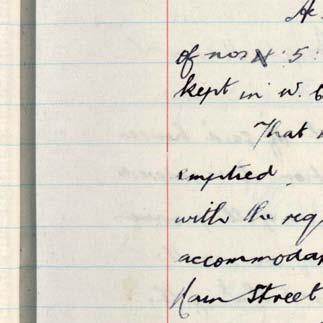 of nos 4. 5.
kept in W. C
That
emptied
with the req
accommodat
Main Street